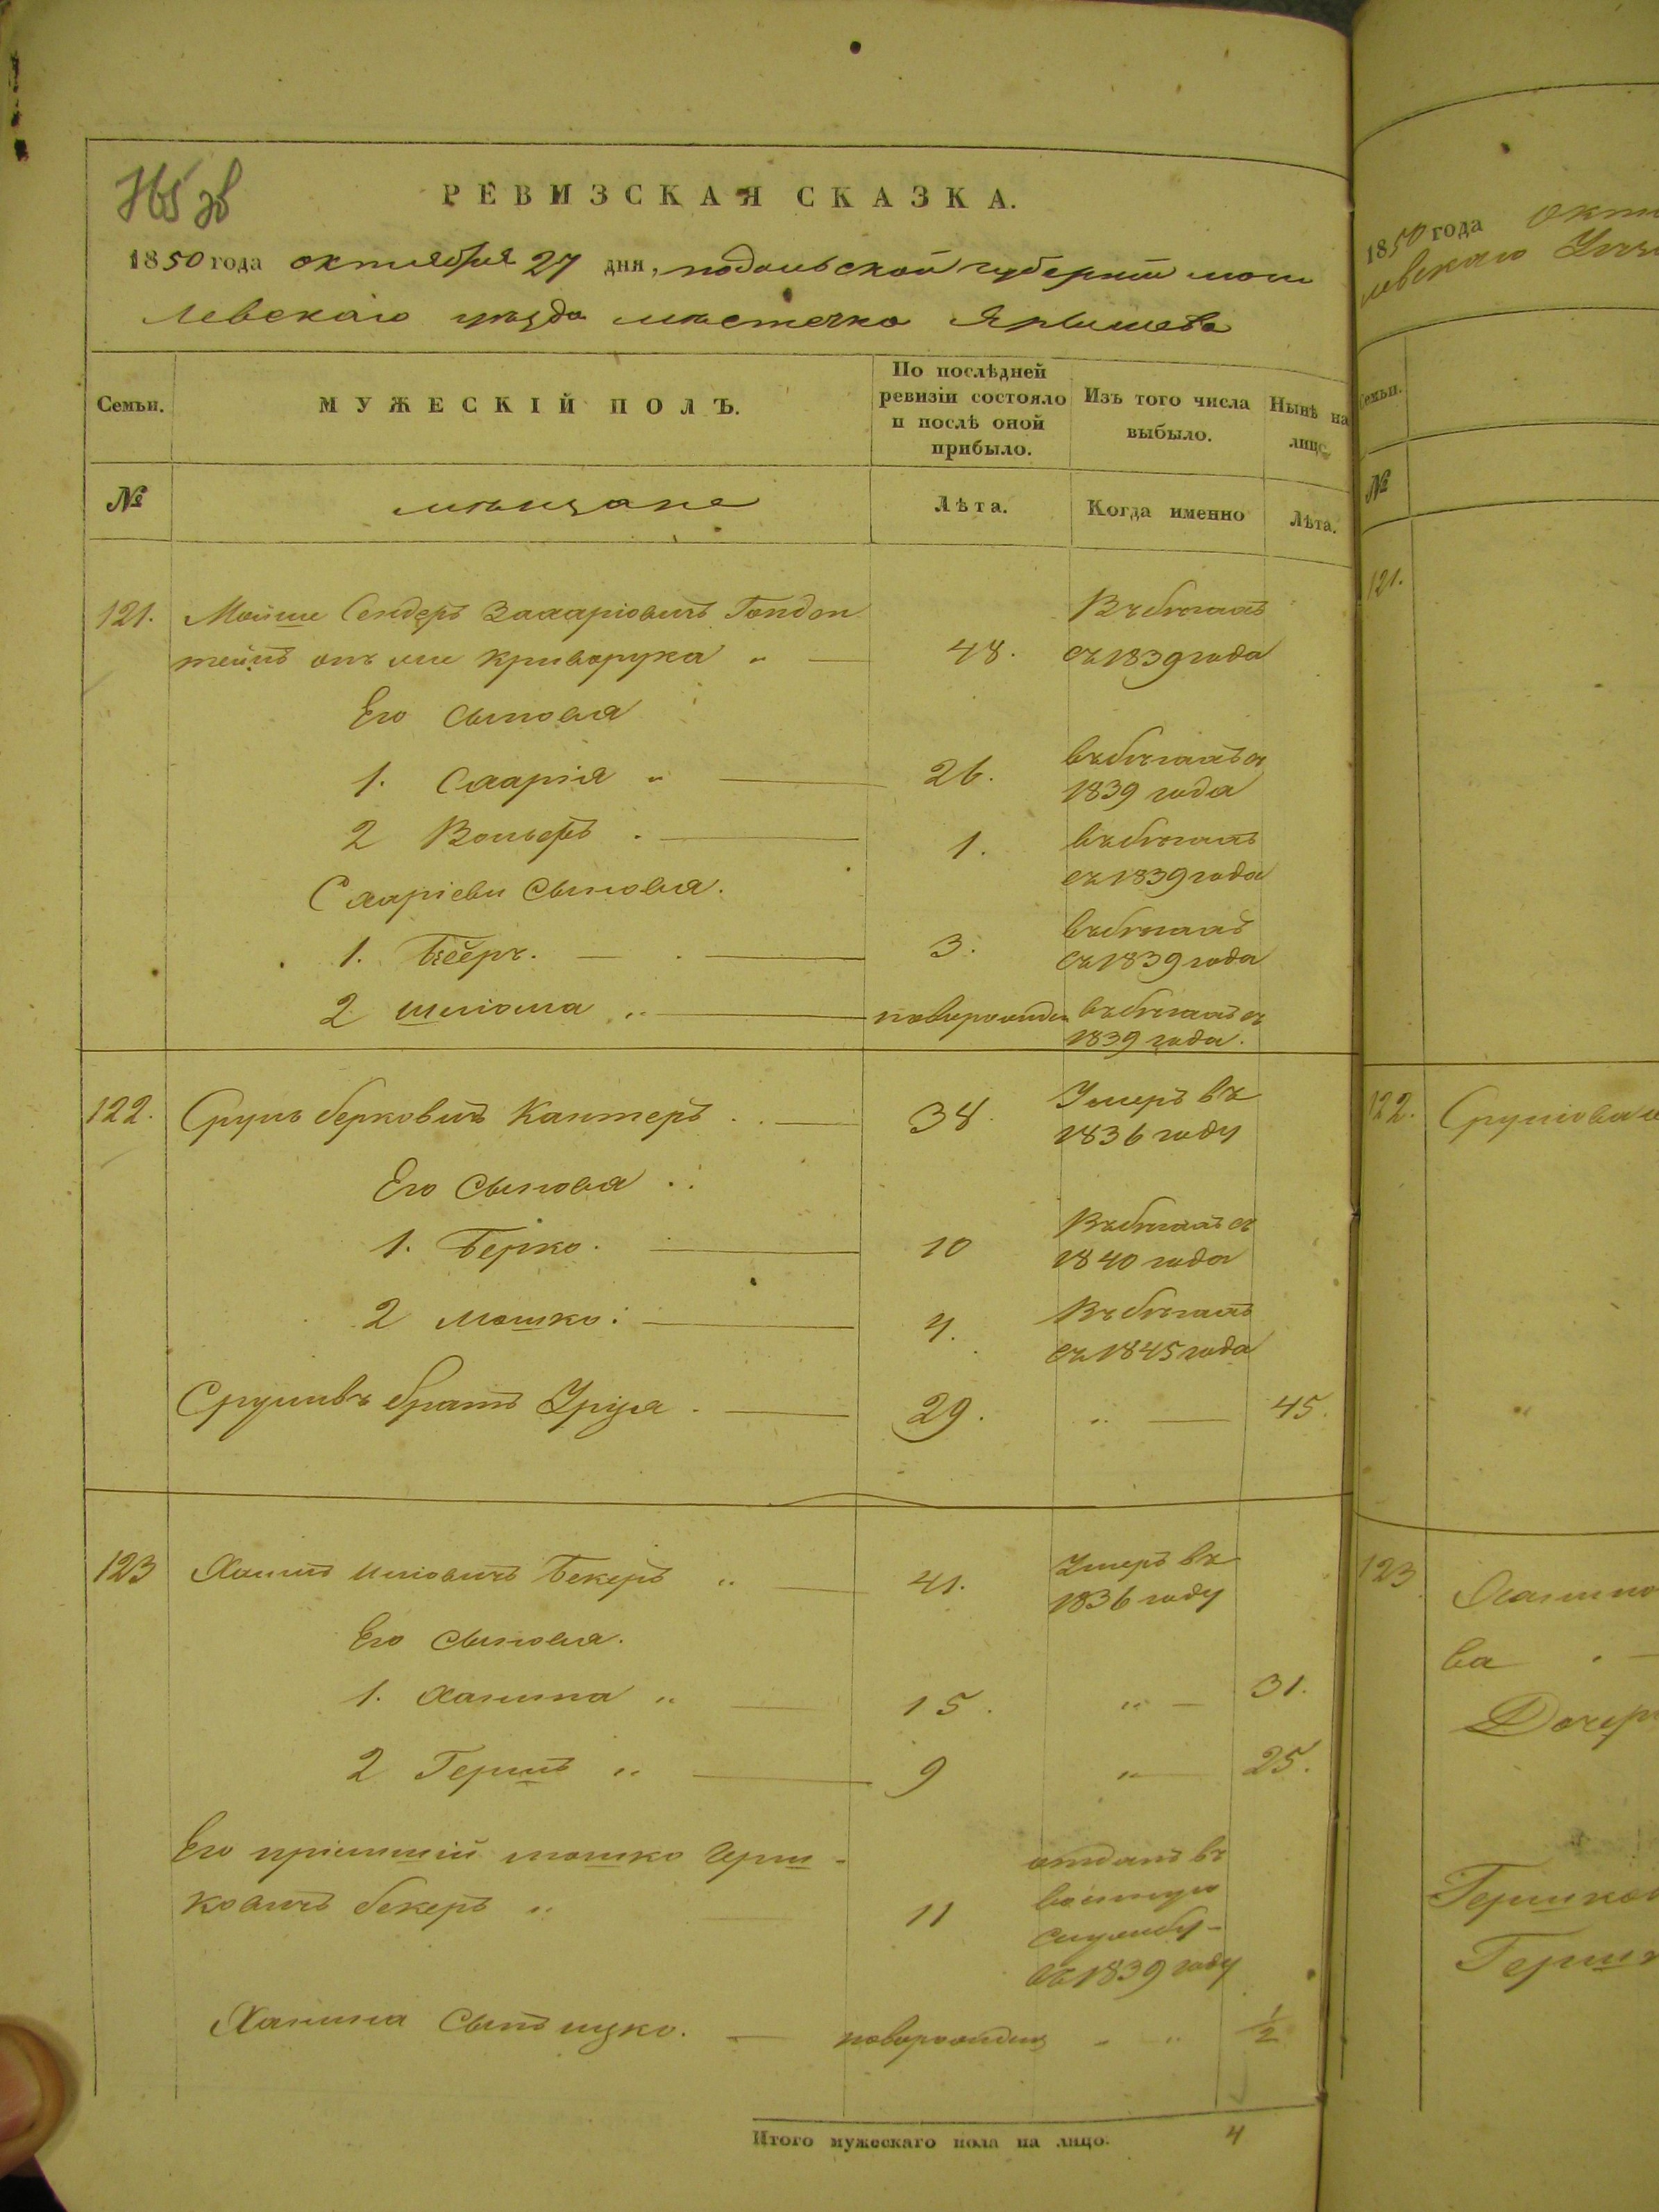 РЕВИЗСКАЯ СКАЗКА.
1850 года октября 27 дня, подольской губернии моги
левскаго уѣзда мѣстечка Ярышева
Семьи.
МУЖЕСКІЙ ПОЛЪ.
По послѣдней
ревизіи состояло
и послѣ оной
прибыло.
Изъ того числа
выбыло.
Нынѣ на
лицо.
№
мѣщане
Лѣта.
Когда именно
Лѣта.
121. Мойше Сендеръ Захаріовичъ
онъ же Криворука 48.
Въ бѣгахъ
съ 1839 года
Его сыновья
1. Схарія 26.
въ бѣгахъ съ
1839 года
2 Вольфъ 1.
въ бѣгахъ
съ 1839 года
Схаріеви сыновья.
1. Бееръ. 3.
въ бѣгахъ
съ 1839 года
2 Шліома новорожден
въ бѣгахъ съ
1839 года.
122. Сруль берковичъ Кантеръ 38.
Умеръ въ
1836 году
Его сыновья
1. Берко. 10
Въ бѣгахъ съ
1840 года
2 Мошко: 4.
Въ бѣгахъ
съ 1845 года
Срулѣвъ братъ 29. 45.
123 Хаимъ Бекеръ 41.
Умеръ въ
1836 году
Его сыновья.
1. Ханина 15. 31.
2 Гершъ 9 25.
Его пріемшій мошко Герш-
ковичъ бекеръ 11
отданъ въ
воинскую
службу
въ 1839 году
Ханина сынъ ицко. новорожден 1/2
Итого мужескаго пола на лицо. 4
1850 года окт
121.
122. Срулова
123
ва
Дочер